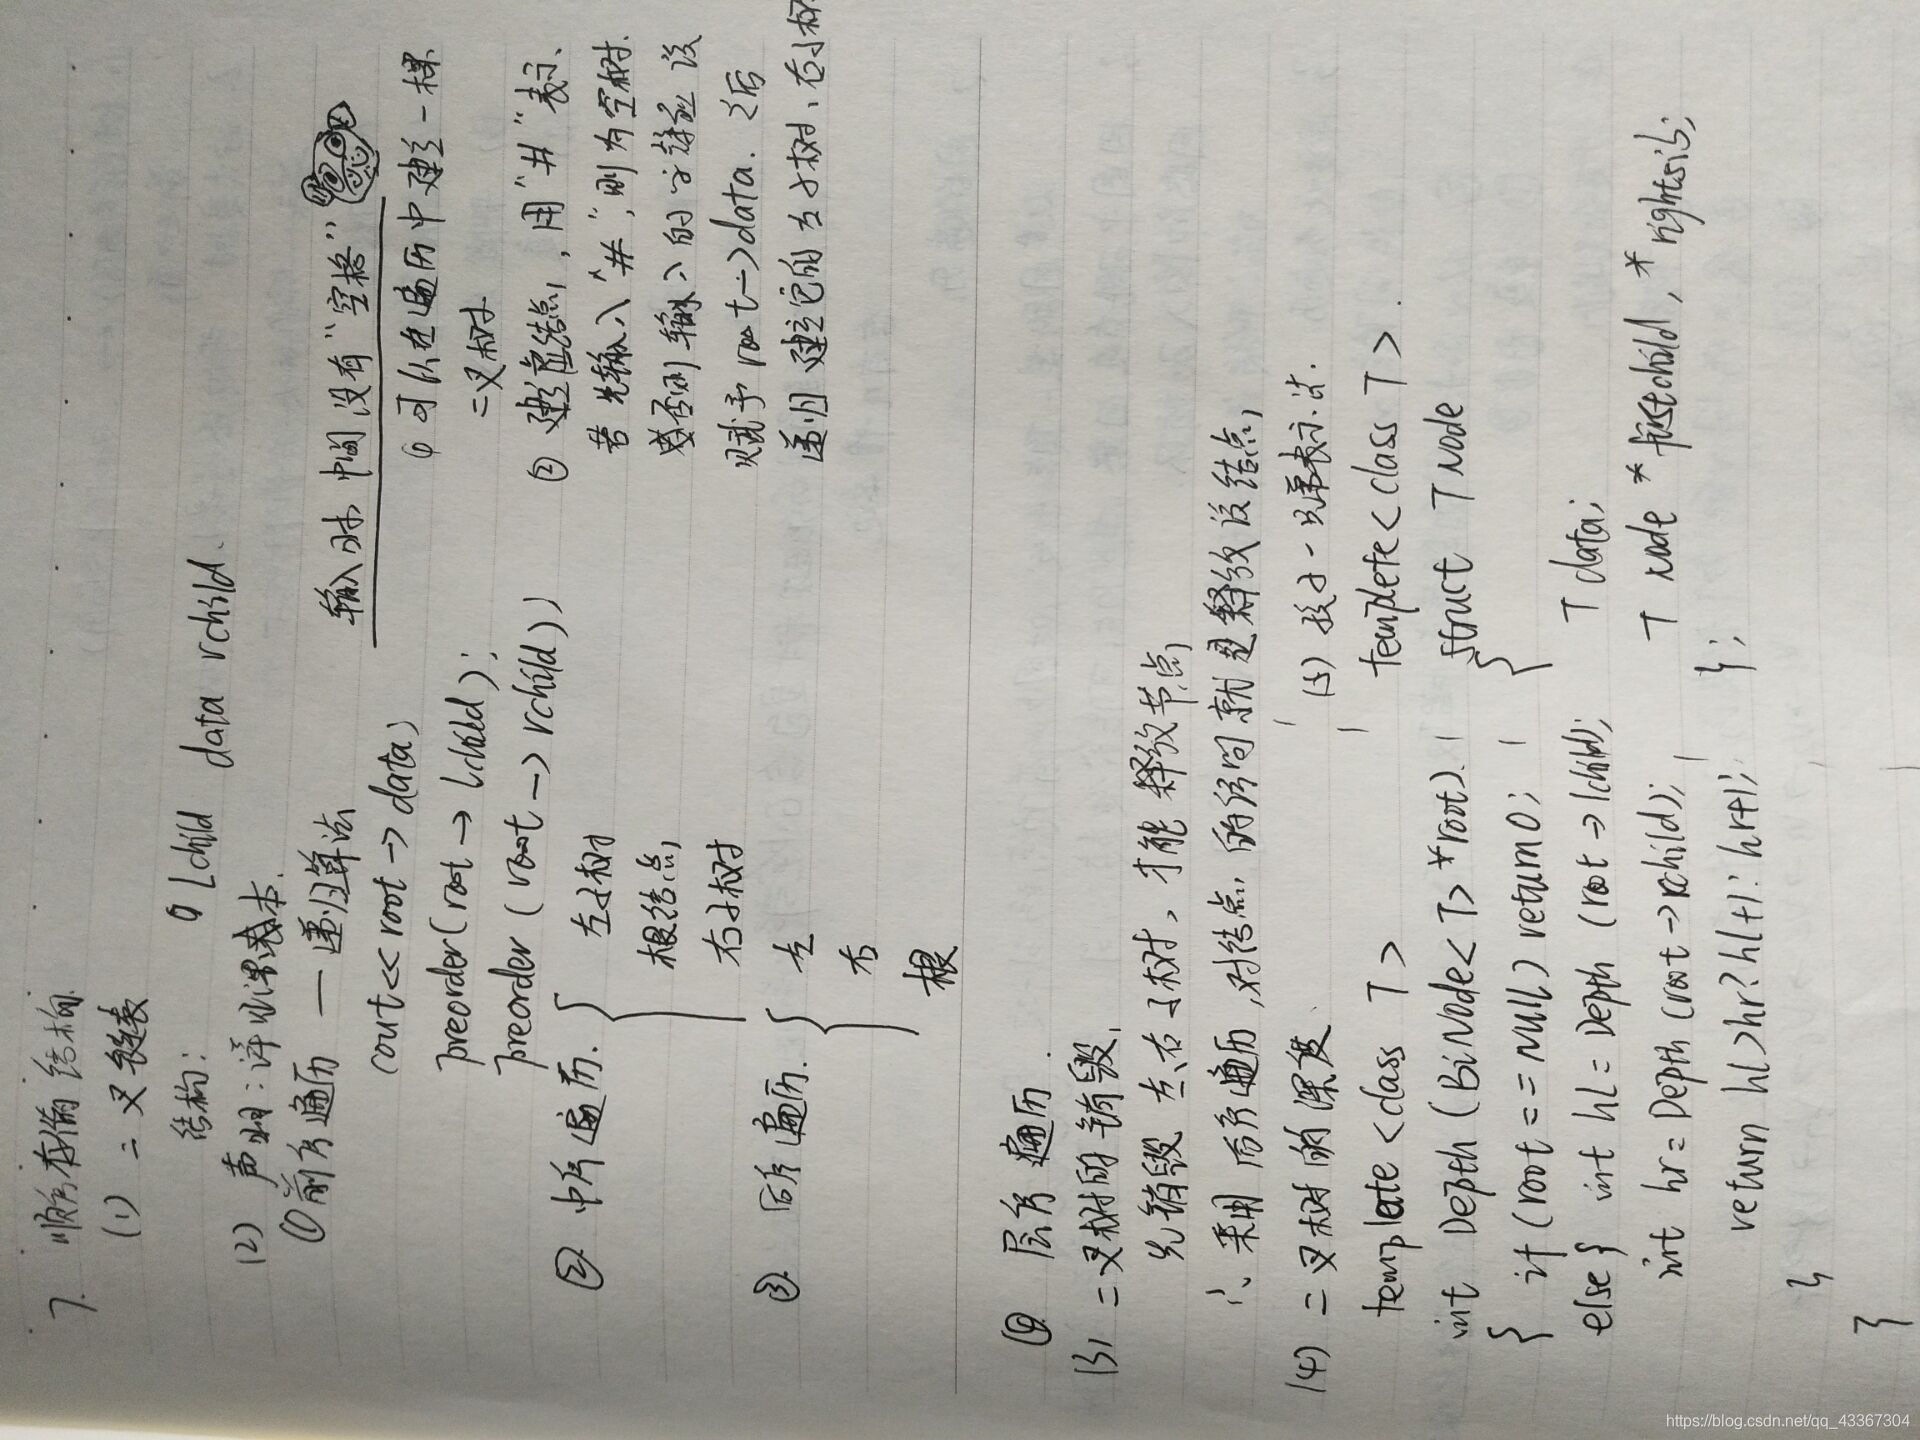 7. 顺序存储结构.
(1) 二叉链表
结构: Lchild data rchild.
(2) 声明: 详见课本.
①前序遍历 — 递归算法
cout << root → data;
preorder(root → Lchild);
preorder (root → rchild))
② 中序遍历. { 左子树
根结点
右子树
③ 后序遍历. { 左
右
根
输入时 中间没有“空格”
① 可以在遍历中建立一棵
二叉树
② 建立虚结点, 用“#”表示.
若先输入“#”, 则为空树.
否则输入的字符应该
赋予 root→data. 之后
递归建立它的左子树、右子树
④ 层序遍历.
(3) 二叉树的销毁.
先销毁左、右子树, 才能释放节点
∴ 采用后序遍历, 对结点的访问就是释放该结点
(4) 二叉树的深度.
template <class T>
int Depth (BiNode< T> *root).
{ if (root == null) return 0;
else } int hl = Depth (root → lchild);
int hr = Depth (root → rchild);
return hl > hr? hl+1: hr+1;
}
}
(5) 孩子-兄弟表示法.
templete < class T >.
struct T Node
{
T data;
T Node * firstchild, * rightsib;
};
https://blog.csdn.net/qq_43367304